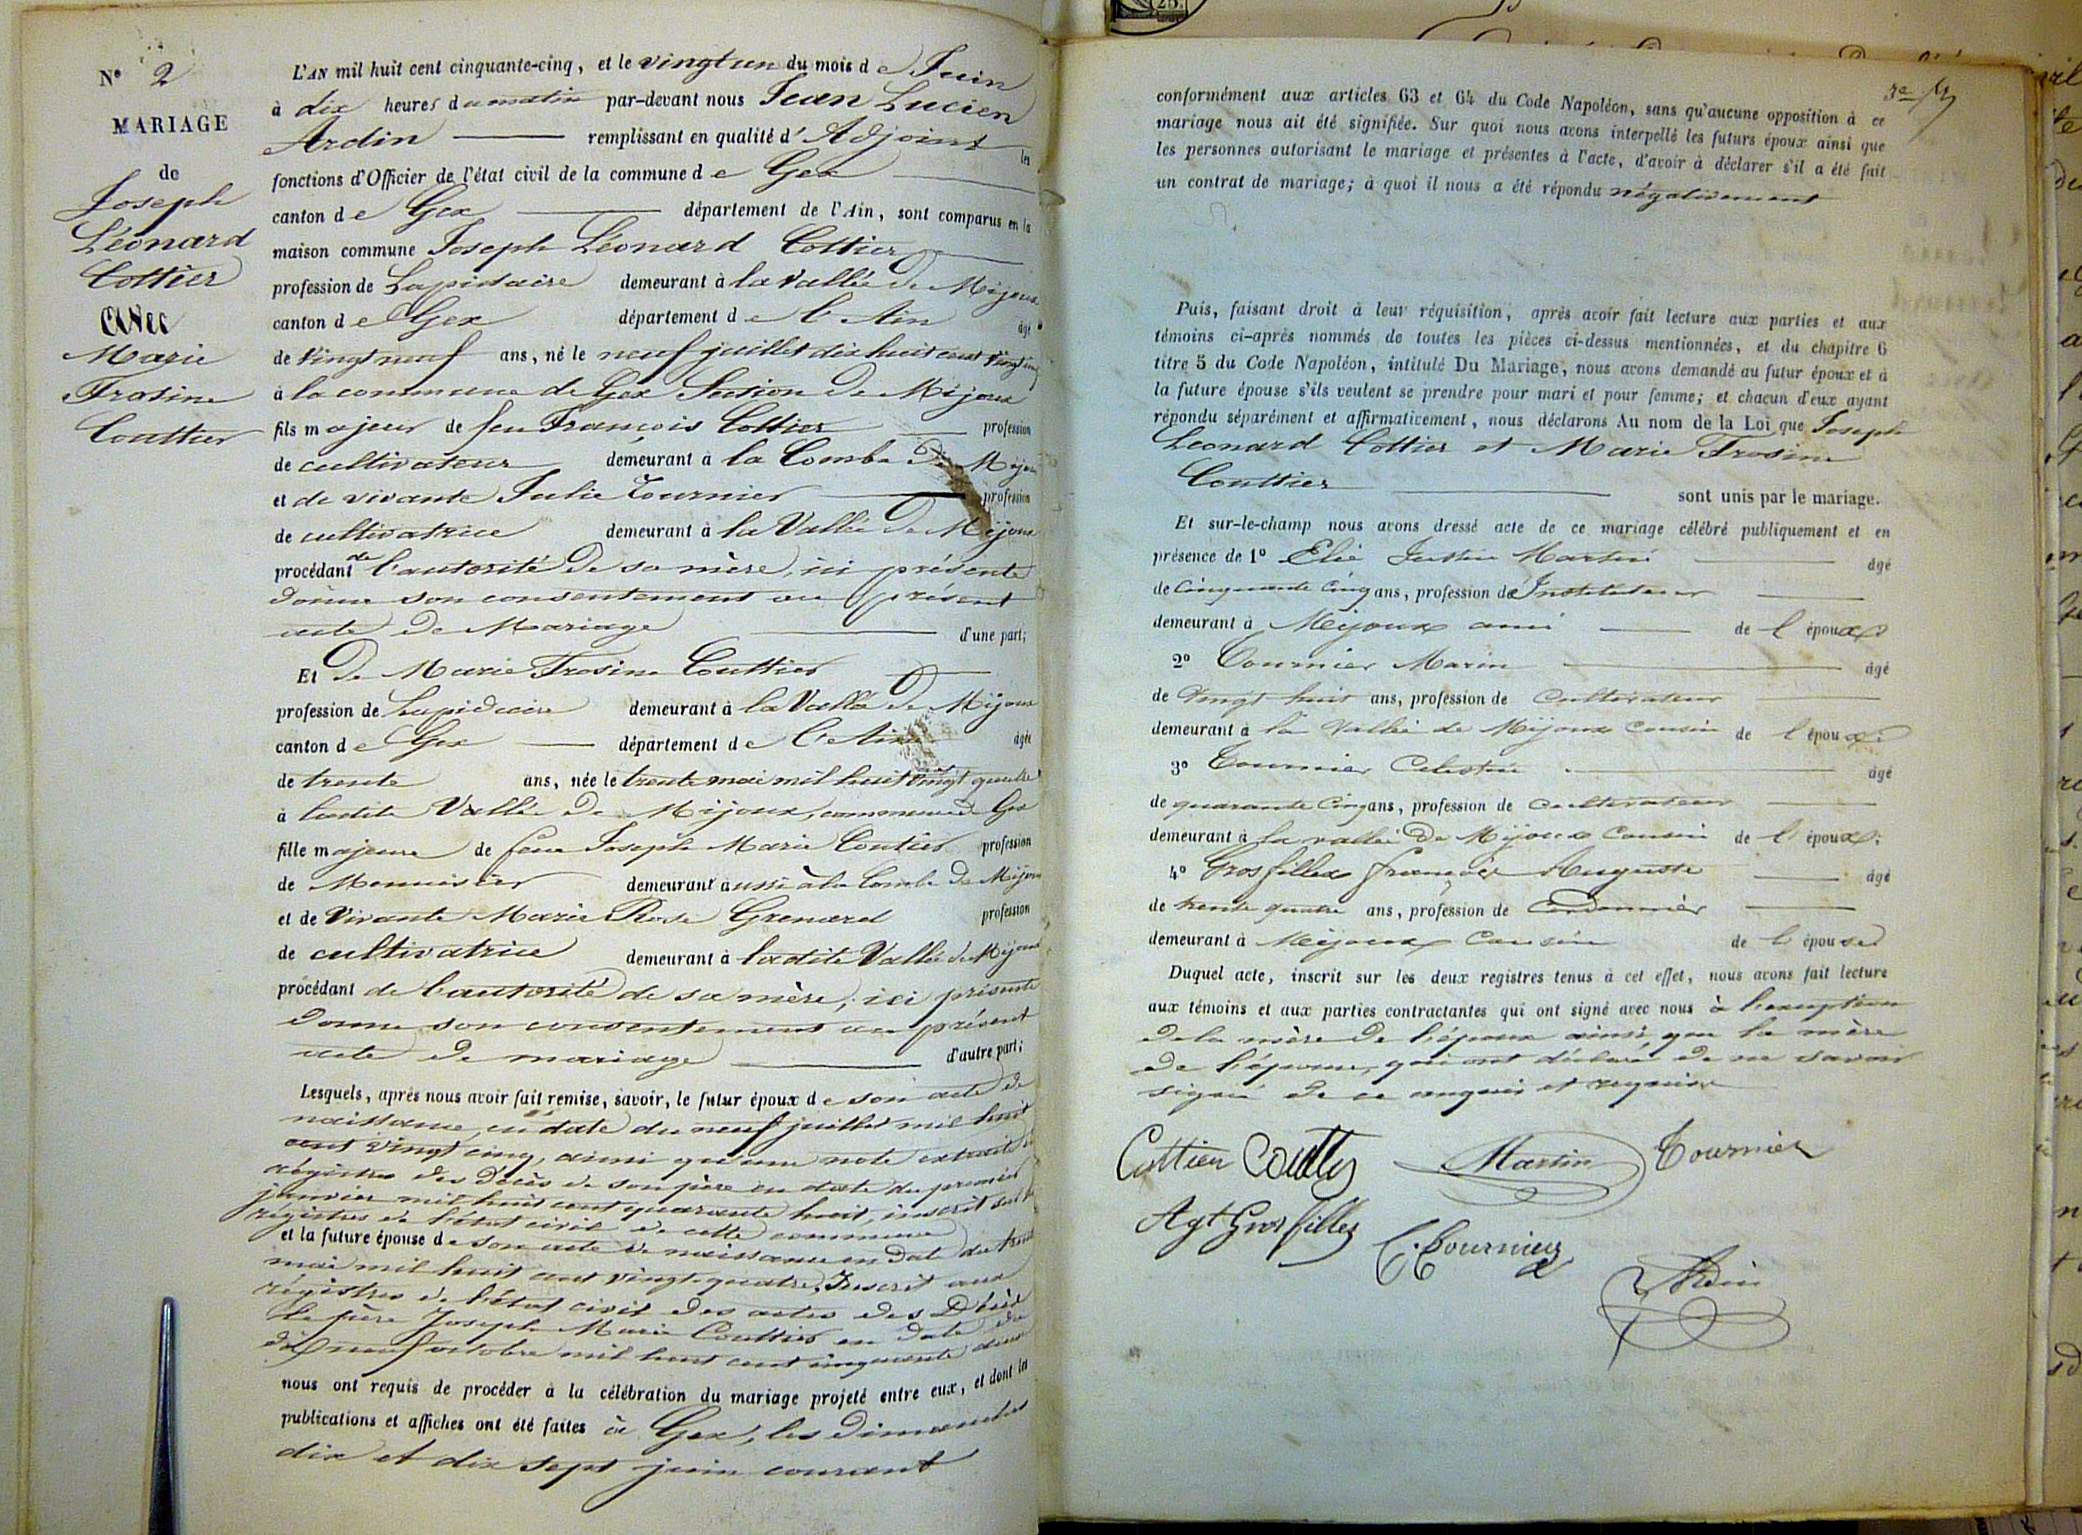 N° 2
MARIAGE
de
Joseph
Léonard
Cottier
avec
Marie
Frosine
Couttier
L'AN mil huit cent cinquante-cinq, et le vingt un du mois de Juin
à dix heures du matin par-devant nous Jean Lucien
Ardin remplissant en qualité d'Adjoint les
fonctions d'Officier de l'état civil de la commune de Gex
canton de Gex département de l'Ain, sont comparus en la
maison commune Joseph Léonard Cottier
profession de Lapidaire demeurant à la Vallée de Mijoux
canton de Gex département de l'Ain âgé
de vingt neuf ans, né le neuf juillet dix huit cent vingt cinq
à la commune de Gex Section de Mijoux
fils majeur de feu François Cottier profession
de cultivateur demeurant à la Combe de Mijoux
et de vivante Julie Tournier profession
de cultivatrice demeurant à la Vallée de Mijoux
procédant de l'autorité de sa mère, ici présente
donne son consentement au présent
acte de Mariage d'une part;
Et de Marie Frosine Couttier
profession de Lapidaire demeurant à la Vallée de Mijoux
canton de Gex département de l'Ain âgée
de trente ans, née le trente mai mil huit cent vingt quatre
à ladite Vallée de Mijoux, commune de Gex
fille majeure de feue Joseph Marie Coutier profession
de Menuisier demeurant aussi à la Combe de Mijoux
et de Vivante Marie Rose Grenard profession
de cultivatrice demeurant à ladite Vallée de Mijoux
procédant de l'autorité de sa mère; ici présente
donne son consentement au présent
acte de mariage d'autre part;
Lesquels, après nous avoir fait remise, savoir, le futur époux de son acte de
naissance, en date du neuf juillet mil huit
cent vingt cinq, ainsi qu'une note extraite
régistres des Décès de son père en date du premier
janvier mil huit cent quarante huit, inscrit sur les
régistres de l'état civil de cette commune
et la future épouse de son acte de naissance en date du trente
mai mil huit cent vingt-quatre, Inscrit aux
régistres de l'état civil des actes des Décès
le père Joseph Marie Couttier en date du
dix neuf octobre mil huit cent cinquante deux
nous ont requis de procéder à la célébration du mariage projeté entre eux, et dont les
publications et affiches ont été faites à Gex, les dimanches
dix et dix sept juin courant
conformément aux articles 63 et 64 du Code Napoléon, sans qu'aucune opposition à ce
mariage nous ait été signifiée. Sur quoi nous avons interpellé les futurs époux ainsi que
les personnes autorisant le mariage et présentes à l'acte, d'avoir à déclarer s'il a été fait
un contrat de mariage; à quoi il nous a été répondu négativement
Puis, faisant droit à leur réquisition, après avoir fait lecture aux parties et aux
témoins ci-après nommés de toutes les pièces ci-dessus mentionnées, et du chapitre 6
titre 5 du Code Napoléon, intitulé Du Mariage, nous avons demandé au futur époux et à
la future épouse s'ils veulent se prendre pour mari et pour femme; et chacun d'eux ayant
répondu séparément et affirmativement, nous déclarons Au nom de la Loi que Joseph
Léonard Cottier et Marie Frosine
Couttier sont unis par le mariage.
Et sur-le-champ nous avons dressé acte de ce mariage célébré publiquement et en
présence de 1° Elie Justin Martin âgé
de Cinquante Cinq ans, profession de Instituteur
demeurant à Mijoux ami de l'époux;
2° Tournier Marin âgé
de Vingt huit ans, profession de Cultivateur
demeurant à la vallée de Mijoux cousin de l'époux;
3° Tournier Celestin âgé
de quarante Cinq ans, profession de Cultivateur
demeurant à la vallée de Mijoux Cousin de l'époux;
4° Grosfillex françois Auguste âgé
de trente quatre ans, profession de Cordonnier
demeurant à Mijoux Cousin de l'épouse
Duquel acte, inscrit sur les deux registres tenus à cet effet, nous avons fait lecture
aux témoins et aux parties contractantes qui ont signé avec nous à l'exception
de la mère de l'époux ainsi que la mère
de l'épouse, qui ont déclaré de ne savoir
signé de ce enquis et requise
Cottier Coutty Martin Tournier
Agt Grosfillex C. Tournier
Ardin